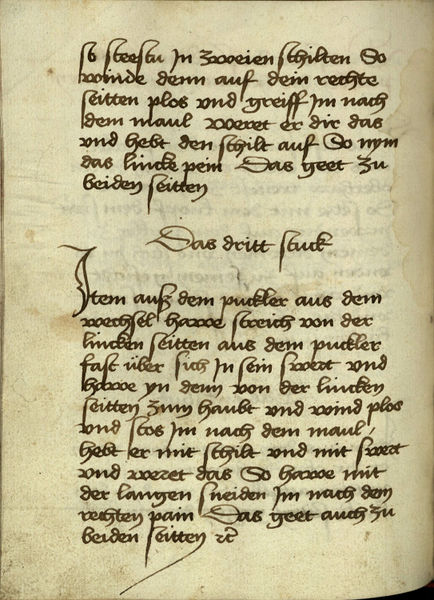 so steestu In zweien schilten So
winde denn auf dein rechte
seitten plos vnd greiff Im nach
dem maul weret er dir das
vnd hebt den schilt auf So nym
das lincke pein Das geet zu
beiden seitten
Das dritt stuck
Item auß dem puckler aus dem
wechsel hawe streich von der
lincken seitten aus dem puckler
fast über sich In sein swert vnd
hawe yn denn von der lincken
seitten zum haubt vnd wind plos
vnd stos Im nach dem maul /
hebt er mit schilt vnd mit swert
vnd weret das So hawe mit
der langen sneiden Im nach dem
rechten pain Das geet auch zu
beiden seitten ꝛc